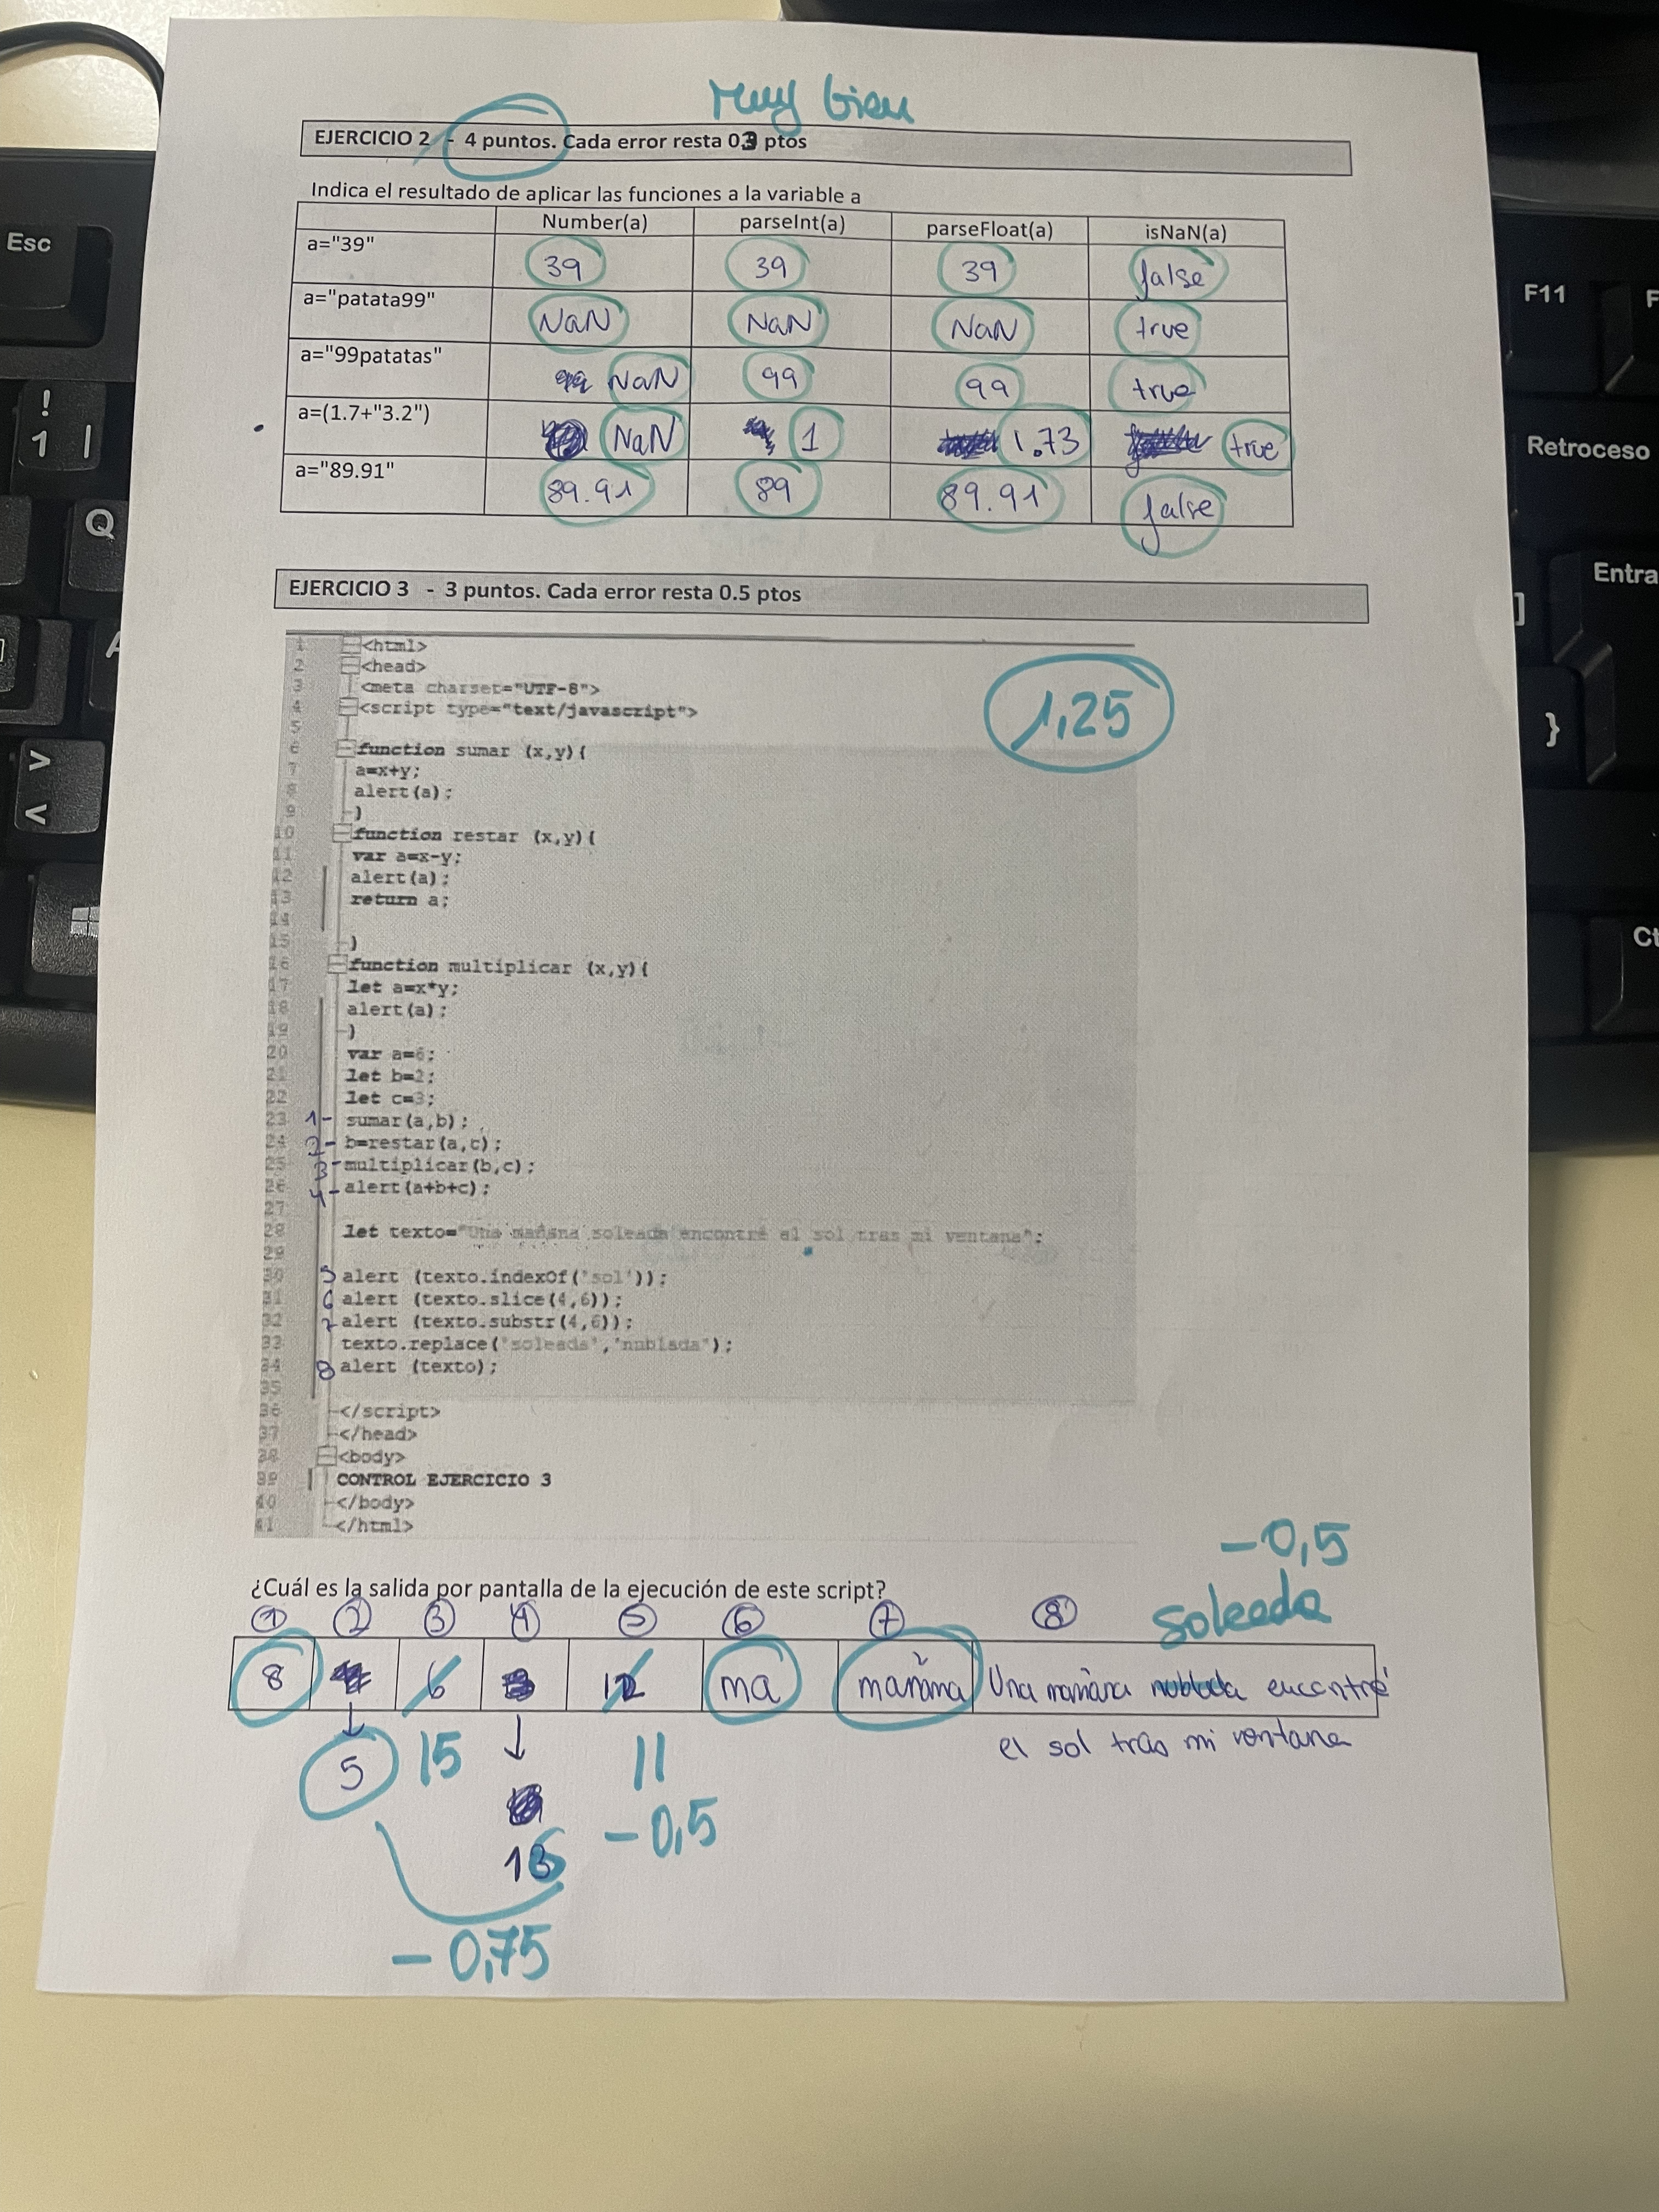 Muy bien
EJERCICIO 2 - 4 puntos. Cada error resta 0.3 ptos
Indica el resultado de aplicar las funciones a la variable a
Number(a) parseInt(a) parseFloat(a) isNaN(a)
a="39" 39 39 39 false
a="patata99" NaN NaN NaN true
a="99patatas" 99 NaN 99 99 true
a=(1.7+"3.2") NaN 1 1.73 true
a="89.91" 89.91 89 89.91 false
EJERCICIO 3 - 3 puntos. Cada error resta 0.5 ptos
1,25
1 <html>
2 <head>
3 <meta charset="UTF-8">
4 <script type="text/javascript">
5
6 function sumar (x,y){
7 a=x+y;
8 alert(a);
9 }
10 function restar (x,y){
11 var a=x-y;
12 alert(a);
13 return a;
14
15 }
16 function multiplicar (x,y){
17 let a=x*y;
18 alert(a);
19 }
20 var a=6;
21 let b=2;
22 let c=3;
23 1- sumar(a,b);
24 2- b=restar(a,c);
25 3- multiplicar(b,c);
26 4- alert(a+b+c);
27
28 let texto="Una mañana soleada encontré el sol tras mi ventana";
29
30 5 alert (texto.indexOf('sol'));
31 6 alert (texto.slice(4,6));
32 7 alert (texto.substr(4,6));
33 texto.replace('soleada','nublada');
34 8 alert (texto);
35
36 </script>
37 </head>
38 <body>
39 CONTROL EJERCICIO 3
40 </body>
41 </html>
-0,5
¿Cuál es la salida por pantalla de la ejecución de este script?
soleada
1 2 3 4 5 6 7 8
8 6 12 ma mañana Una mañana nublada encontré
el sol tras mi ventana
5 15 11
-0,5
-0,75
Esc
! 1 |
Q
A
> <
F11
Retroceso
Entra
]
}
Ct